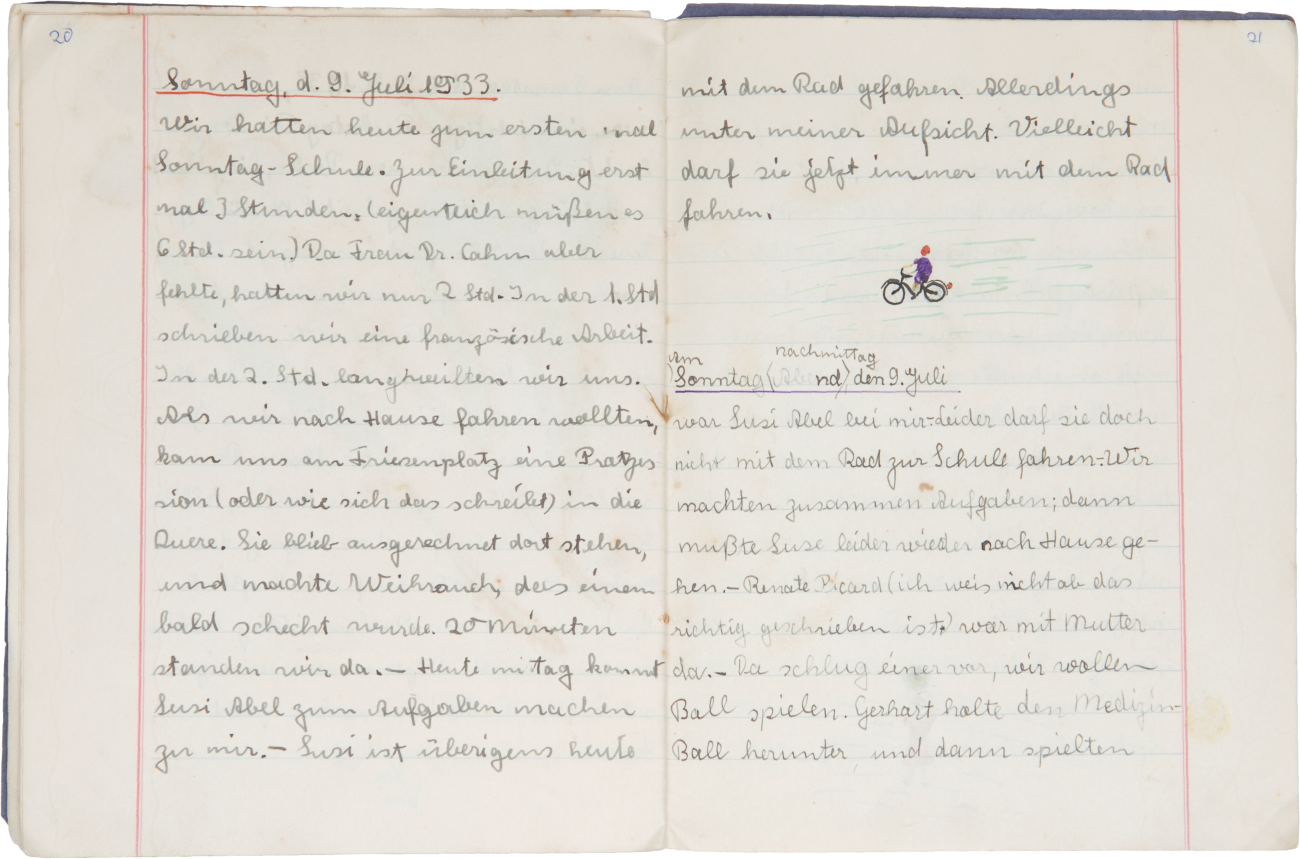 20
Sonntag, d. 9. Juli 1933.
Wir hatten heute zum ersten mal
Sonntag-Schule. Zur Einleitung erst
mal 3 Stunden. (eigentlich müßen es
6 Std. sein.) Da Frau Dr. Cahn aber
fehlte, hatten wir nur 2 Std. In der 1. Std
schrieben wir eine französische Arbeit.
In der 2. Std. langweilten wir uns.
Als wir nach Hause fahren wollten,
kam uns am Friesenplatz eine Pratzes
sion (oder wie sich das schreibt) in die
Quere. Sie blieb ausgerechnet dort stehen,
und machte Weihrauch, das einem
bald schecht wurde. 20 Minuten
standen wir da. — Heute mitag kommt
Susi Abel zum Aufgaben machen
zu mir. — Susi ist überigens heute
21
mit dem Rad gefahren. Allerdings
unter meiner Aufsicht. Vielleicht
darf sie jetzt immer mit dem Rad
fahren.
Am nachmittag
Sonntag (Abend) den 9. Juli
war Susi Abel bei mir. Leider darf sie doch
nicht mit dem Rad zur Schule fahren. Wir
machten zusammen Aufgaben; dann
mußte Suse leider wieder nach Hause ge-
hen. — Renate Picard (ich weis nicht ob das
richtig geschrieben ist) war mit Mutter
da. — Da schlug einer vor, wir wollen
Ball spielen. Gerhart holte den Medizin-
Ball herunter, und dann spielten